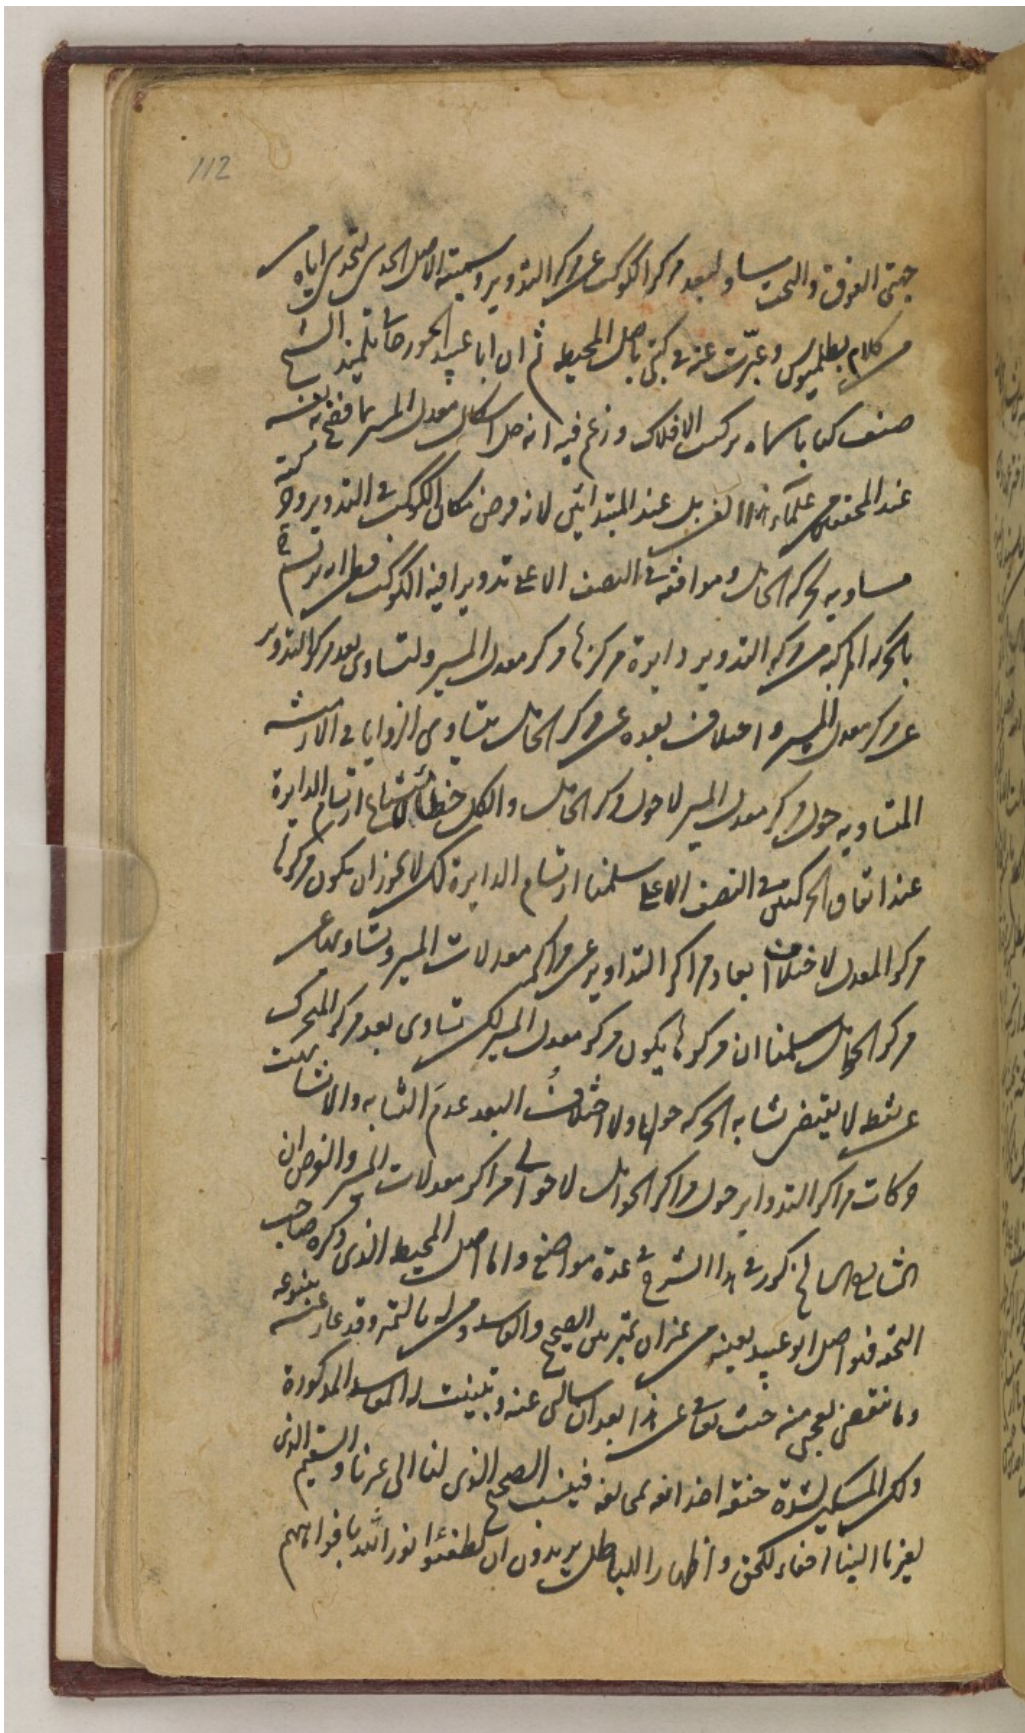 112
جهتى الفوق والتحت مساو لبعد مركز الكوكب عن مركز التدوير وسميته الاصل الحدسى لتحدسى اياه من
كلام بطلميوس وعبّرت عنه فى كتبى باصل المحيطه ثم ان ابا عبيد الجوزجانى تلميذ الشيخ
صنف كتابا سماه تركيب الافلاك وزعم فيه انه حل اشكال معدل المسير بما فضح به نفسه
عند المحققين من علماء هذا الفن بل عند المبتدائين لانه فرض مكان الكوكب فى التدوير وحركته
مساويه لحركه الحامل وموافقه فى النصف الاعلى تدويرا فيه الكوكب فظن انه يرتسم
بالحركه المركبه من حركه التدوير دايرة مركزها مركز معدل المسير ولتساوى بعد مركز التدوير
عن مركز معدل المسير واختلاف بعده عن مركز الحامل يتساوى الزوايا فى الازمنة
المتساويه حول مركز معدل المسير لا حول مركز الحامل والكل خطأ لامتناع ارتسام الدايرة
عند اتفاق الحركتين فى النصف الاعلى سلمنا ارتسام الدايرة لكن لا يجوز ان يكون مركزها
مركز المعدل لاختلاف ابعاد مراكز التداوير عن مراكز معدلات المسير وتساويها عن
مركز الحامل سلمنا ان مركزها يكون مركز معدل المسير لكن تساوى بعد مركز المتحرك
عن نقطه لا يقتضى تشابه الحركه حولها ولا اختلافُ البعد عدمَ التشابه والا تشابهت
حركات مراكز التداوير حول مراكز الحوامل لا حوالى مراكز معدلات المسير والغرض ان
التشابه مذكور فى هذا الشرح فى عدة مواضع واما اصل المحيطه الذى ذكره صاحب
التحفه فهو اصل ابو عبيد بعينه من غير ان يميز بين الصحيح والفاسد وقد عار
وما تنقضى تعجبى منه حيث بعد ان سالنى عنه وتبينت له المفاسد المذكورة
ولكن المسكين لشدة حنقه فينسب الصحيح الذى لنا الى غيرنا والسقيم الذى
لغيرنا الينا اخفاء للحق واظهارا للباطل يريدون ان يطفئوا نور الله بافواههم